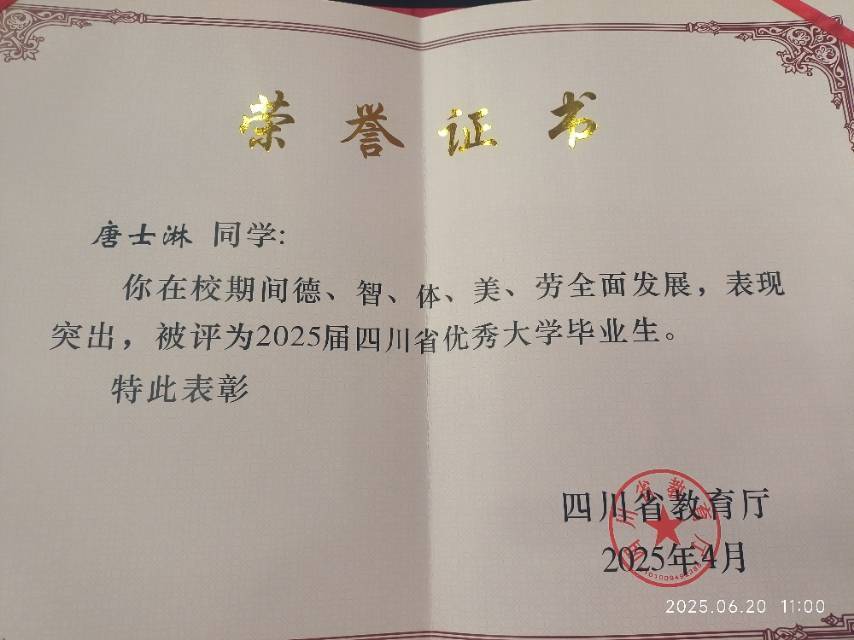 荣誉证书
唐士淋 同学:
你在校期间德、智、体、美、劳全面发展，表现
突出，被评为2025届四川省优秀大学毕业生。
特此表彰
四川省教育厅
2025年4月
四川省教育厅
2025.06.20 11:00